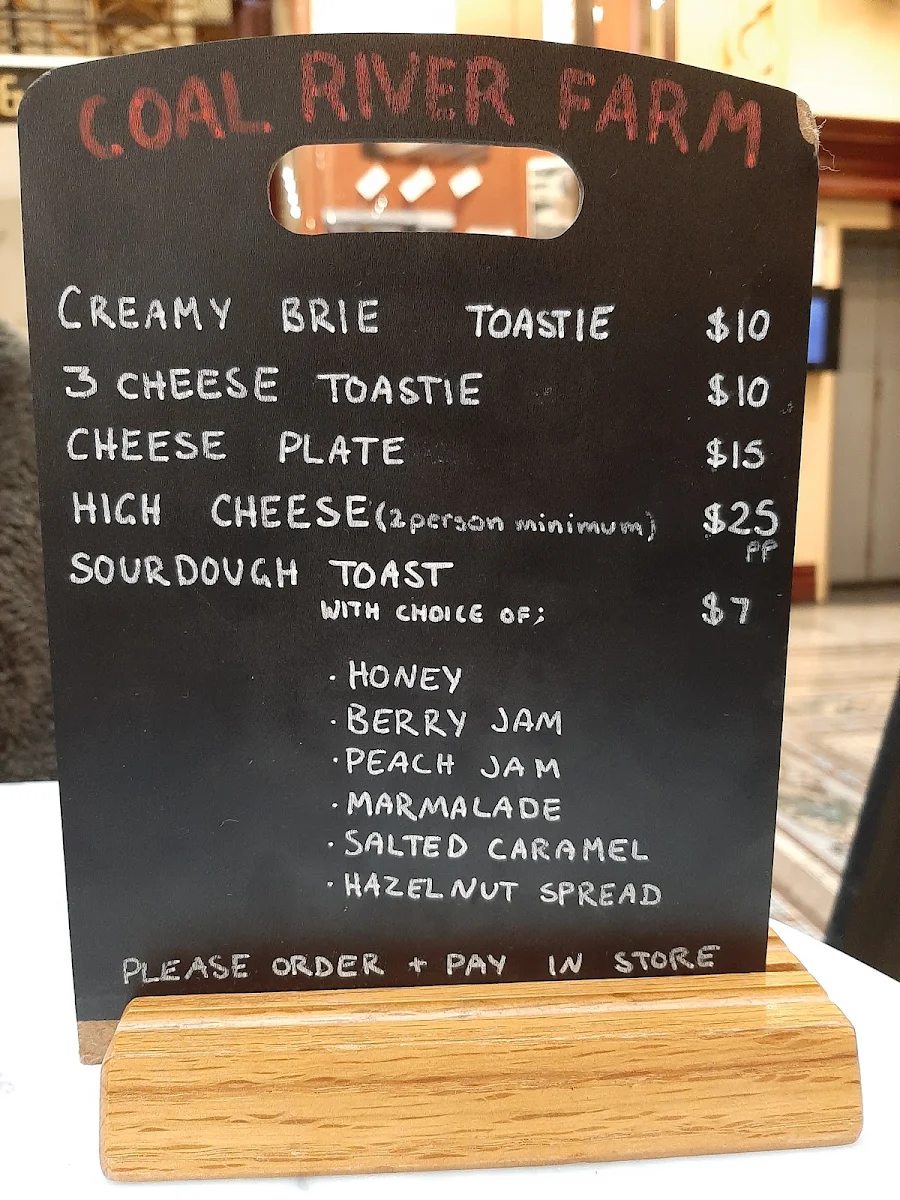 COAL RIVER FARM
CREAMY BRIE TOASTIE $10
3 CHEESE TOASTIE $10
CHEESE PLATE $15
HIGH CHEESE (2 person minimum) $25
PP
SOURDOUGH TOAST
WITH CHOICE OF; $7
· HONEY
· BERRY JAM
· PEACH JAM
· MARMALADE
· SALTED CARAMEL
· HAZELNUT SPREAD
PLEASE ORDER + PAY IN STORE